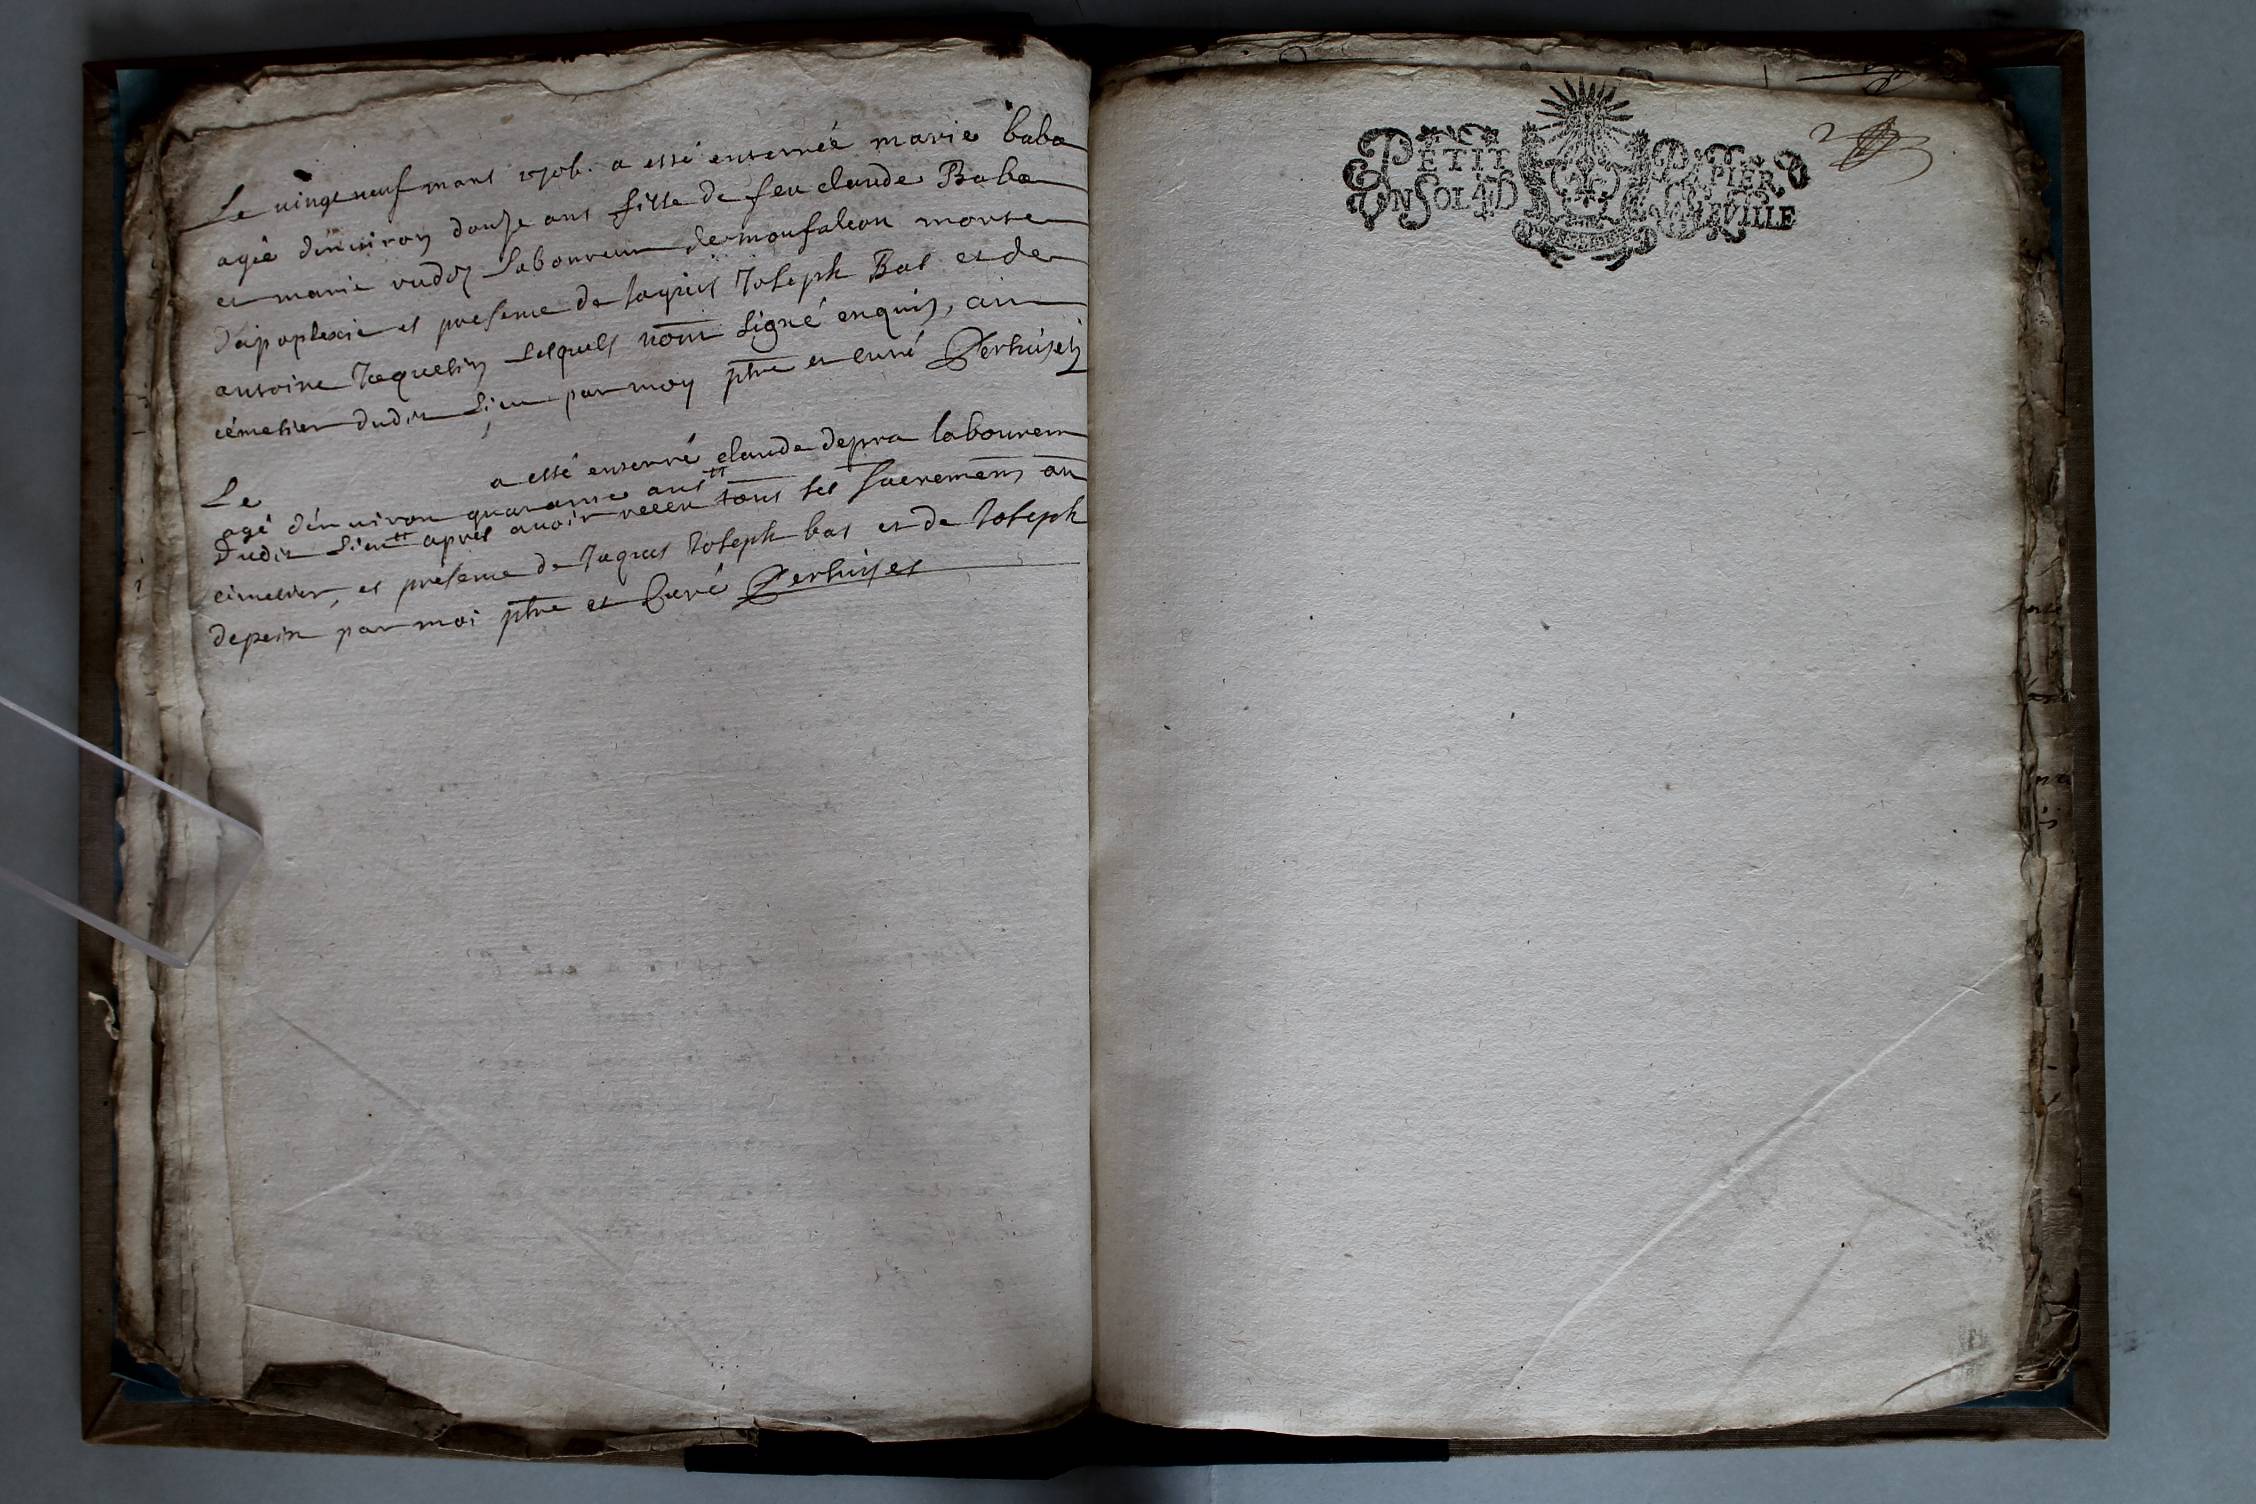 Le vingt neuf mars 1706. a esté enterrée marie baba
agée d'environ douze ans fille de feu claude Baba
et marie rudoz laboureur de monfaleon morte
d'apoplexie et presence de Jaques Joseph Bas et de
antoine Jaquelin lesquels nont signé enquis, au
cémetier dudit Lieu par moy ptre et curé
Le a esté enterré claude depra laboureur
agé d'environ quarante ans
dudit Lieu apres avoir receu tous ses sacremens au
cimetier, et presence de Jaques Joseph bas et de Joseph
depein par moi ptre et Curé
PETIT PAPIER
UN SOL 4 D LA VILLE